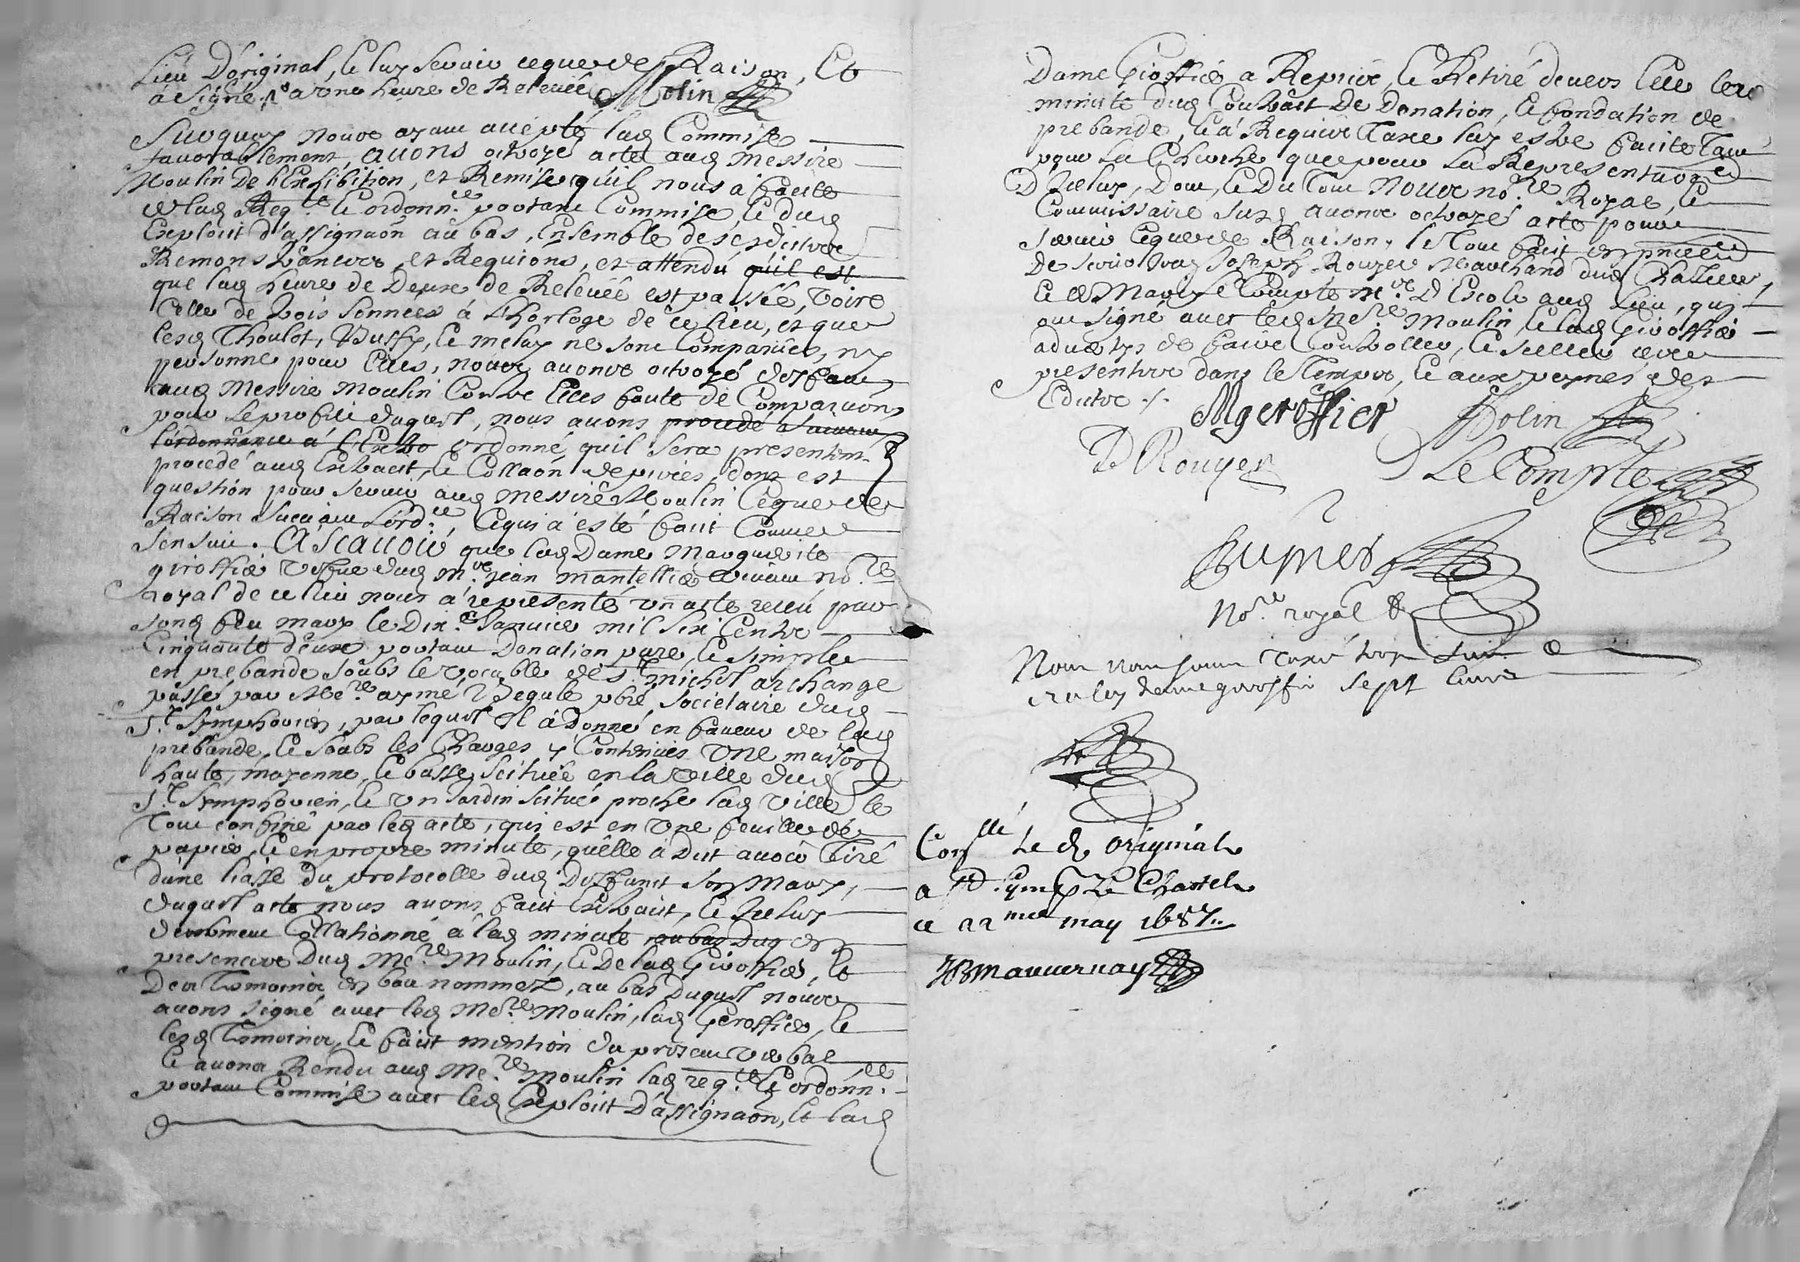 Lieu D'original, & luy servir ceque de Raison, Et
a signé, a une heure de Relevée Molin
Surquoy nous ayant accepté lad Commise
favorablement, avons octroyé acte aud Messire
Moulin De l'Exhibition, et Remise qu'il nous a faitte
de lad Reqte & ordonn.ce portant Commise, & dud
Exploit d'assignaon au bas, Ensemble de sesd
Remonstrances, et Requions, et attendu qu'il est
que lad heure de Deux de Relevée est passée, voire
Celle de trois sonnées à l'horloge de ce lieu, et que
lesd Thoulot, Bussy, & meluy ne sont Comparües, ny
personne pour Elles, nous avons octroyé deffaut
aud Messire Moulin Contre Elles faute de Comparuon
pour le profit duquel, nous avons procedé
l'ordonnance à ordonné, qu'il sera presentem.
procedé aud Extrait, & Collaon de pieces dont est
question pour servir aud messire Moulin Ceque de
Raison suivant l'ord.ce, Cequi a esté fait Comme
s'ensuit. Ascavoir que lad Dame Marguerite
giroffié vefve dud m.re jean mantellié vivant no.re
royal de ce lieu nous a representé un acte receu par
sond feu mary le Dix.e Janvier mil six Centz
Cinquante deux portant Donation pure, & simple
en prebande soubs le vocable de S.t michel archange
passé par Me.re aymé pbre, Societaire dud
S.t Symphorien, par lequel Il a Donné en faveur de lad
prebande, & soubs les Charges y Contenues une maison
haute, moyenne, & basse scituée en la ville dud
S.t Symphorien, & un Jardin scitué proche lad ville le
tout confiné par led acte, qui est en une feuille de
papier, & en propre minute, qu'elle a Dit avoir tiré
d'une liasse du protocolle dud Deffunct son Mary,
duquel acte nous avons fait Extrait, & Iceluy
deubment Collationné a lad minute au bas Dud en
presence Dud Me.re Moulin, & De lad Giroffié, &
Deux tesmoins en bas nommez, au bas Duquel nous
avons signé avec led Me.re Moulin, lad Geroffié, &
lesd tesmoins, & fait mention du procez verbal
& avons Rendu aud Me.re Moulin lad req.te & ordonn.ce
portant Commise avec led Exploit D'assignaon, & lad
Dame Gioffié a Reprise, & Retiré devers Elle lad
minute dud Contract De Donation, & fondation de
prebande, & a Requis Taxe luy estre faite Tant
pour la Cherche que pour la Representaon
D'Iceluy, Dont, & Du Tout Nous no.re Royal, &
Commissaire susd avons octroyé acte pour
servir Ceque de Raison, le Tout fait en presence
De Joseph Rouyer Marchand dud Chastel
& de Maurise Compte m.re D'Escole aud Lieu, qui
ont signé avec led Me.re Moulin, & lad Giroffié
advertys de faire Controller, & seeller ces
presentes dans le Temps, & aux peynes des
Edictz ./.
Mgeroffier Molin
D Rouyer D Le Compte
no.re royal
Nous nous somme taxé trois livres &
a lad dame giroffié sept livres
Con.llé Le d original
a S.t Simph Le Chastel
ce 22.me may 1687.